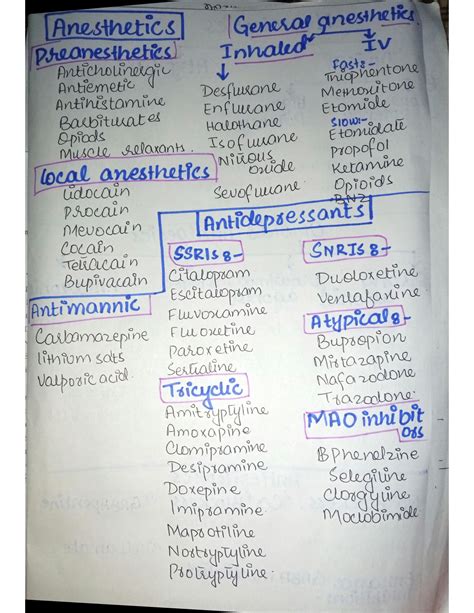 Anesthetics
Preanesthetics
Anticholinergic
Antiemetic
Antihistamine
Barbiturates
Opiods
Muscle relaxants.
Local anesthetics
lidocain
Procain
Mevocain
Cocain
Tetracain
Bupivacain
Antimannic
Carbamazepine
lithium salts
Valporic acid.
General anesthetics
Inhaled
Desflurane
Enflurane
Halothane
Isoflurane
Nitrous
oxide
Sevoflurane
IV
Fast:-
Thiophentone
Methoxitone
Etomide
Slow:-
Etomidate
Propofol
Ketamine
Opioids
BNZ
Antidepressants
SSRIs :-
Citalopram
Escitalopram
Fluvoxamine
Fluoxetine
Paroxetine
Sertraline
Tricyclic
Amitryptyline
Amoxapine
Clomipramine
Desipramine
Doxepine
Imipramine
Maprotiline
Nortryptyline
Protryptyline.
SNRIs :-
Duoloxetine
Venlafaxine
Atypical :-
Bupropion
Mirtazapine
Nafazodone
Trazodone.
MAO inhibit
ors
Phenelzine
Selegiline
Clorgyline
Moclobimide